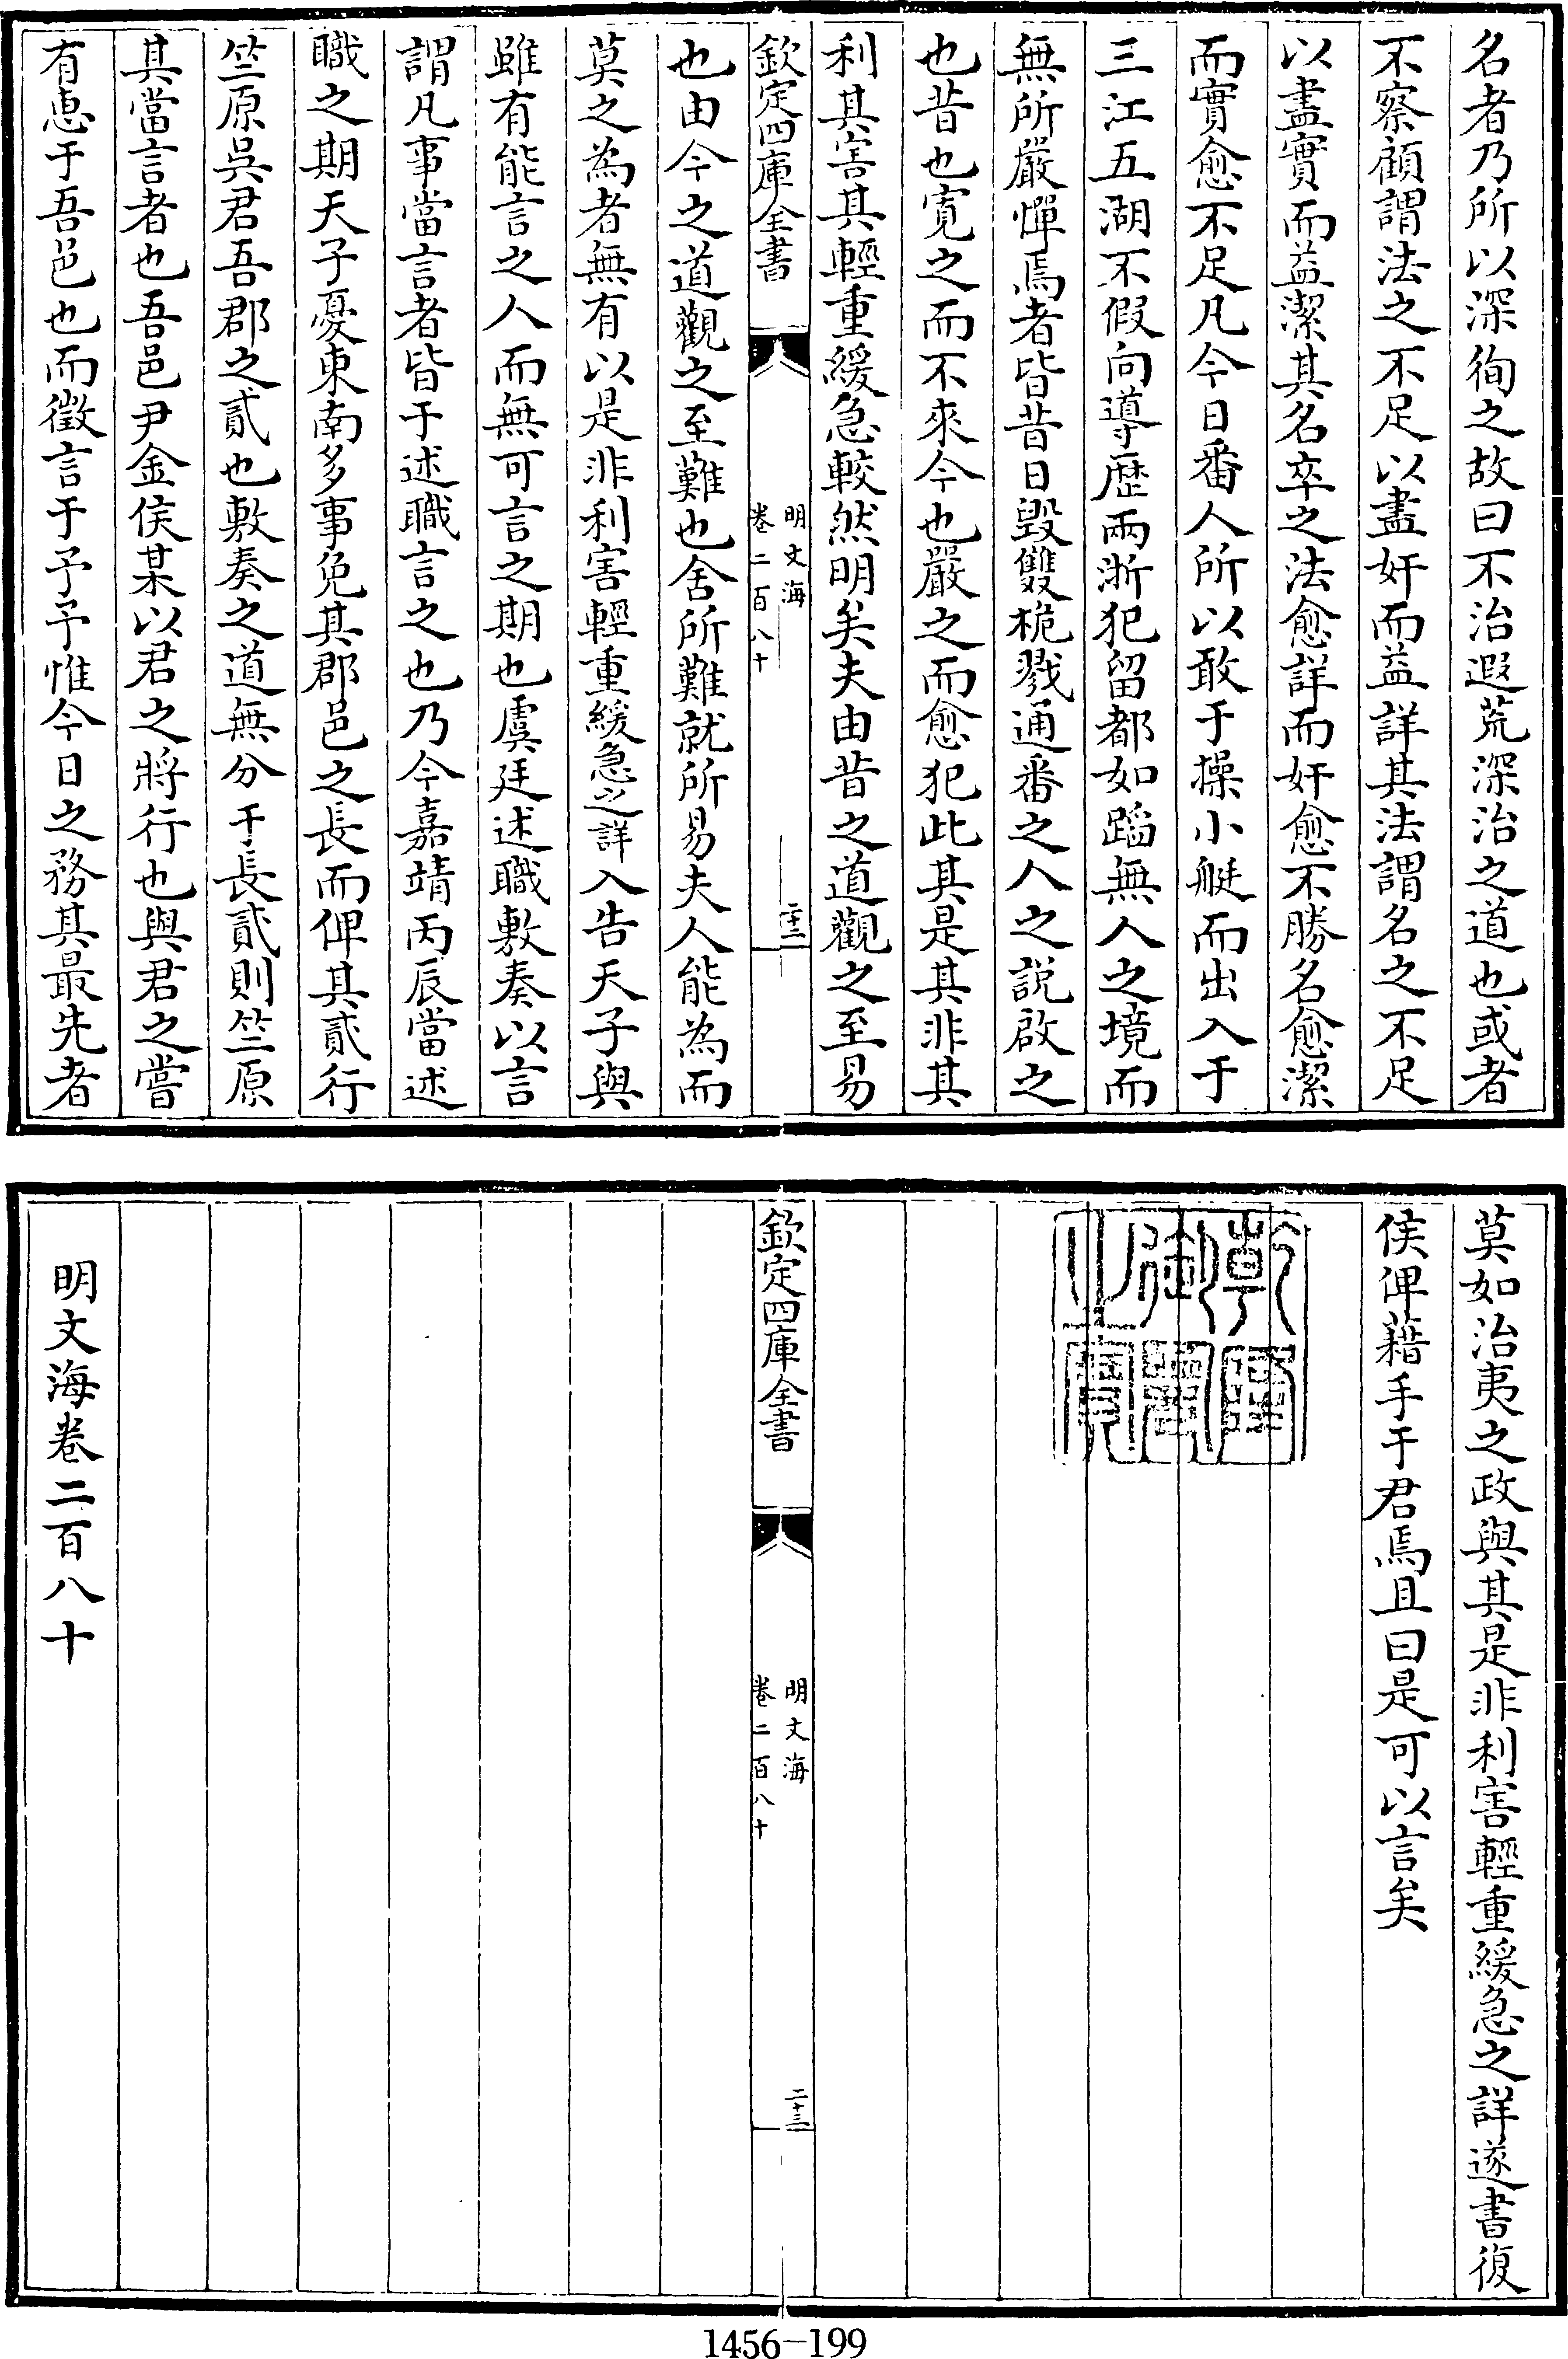 名者乃所以深徇之故曰不治遐荒深治之道也或者
不察顧謂法之不足以盡奸而益詳其法謂名之不足
以盡實而益潔其名卒之法愈詳而奸愈不勝名愈潔
而實愈不足凡今日番人所以敢于操小艇而出入于
三江五湖不假向導歴兩浙犯留都如蹈無人之境而
無所嚴憚焉者皆昔日毁雙桅戮通番之人之説啟之
也昔也寛之而不來今也嚴之而愈犯此其是其非其
利其害其輕重緩急較然明矣夫由昔之道觀之至易
欽定四庫全書
明文海
卷二百八十
二十二
也由今之道觀之至難也舍所難就所易夫人能為而
莫之為者無有以是非利害輕重緩急之詳入告天子與
雖有能言之人而無可言之期也虞廷述職敷奏以言
謂凡事當言者皆于述職言之也乃今嘉靖丙辰當述
職之期天子憂東南多事免其郡邑之長而俾其貳行
竺原吳君吾郡之貳也敷奏之道無分于長貳則竺原
其當言者也吾邑尹金侯某以君之將行也與君之嘗
有惠于吾邑也而徵言于予予惟今日之務其最先者
莫如治夷之政與其是非利害輕重緩急之詳遂書復
侯俾藉手于君焉且曰是可以言矣
乾隆御覽之寶
欽定四庫全書
明文海
卷二百八十
二十三
明文海卷二百八十
1456-199